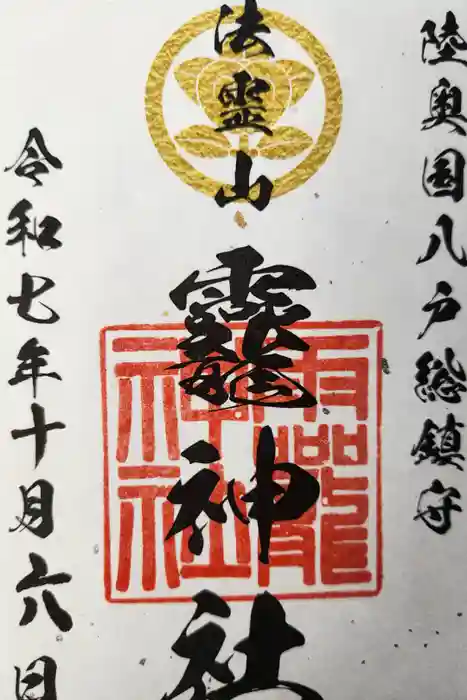 陸奥国八戸総鎮守
法霊山
龗神社
龗神社
令和七年十月六日